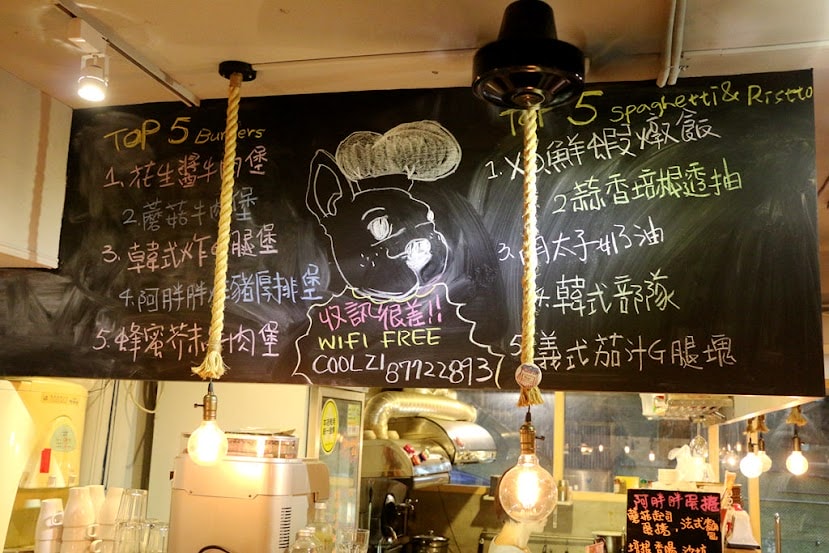 TOP 5 Burgers
1. 花生醬牛肉堡
2. 蘑菇牛肉堡
3. 韓式炸腿堡
4. 阿胖胖豬厚排堡
5. 蜂蜜芥末肉堡
收訊很差!!
WIFI FREE
COOLZI 87722893
TOP 5 Spaghetti & Ristto
1. XO鮮蝦燉飯
2. 蒜香培根透抽
3. 明太子奶油
4. 韓式部隊
5. 義式茄汁G腿塊
阿胖胖蛋捲